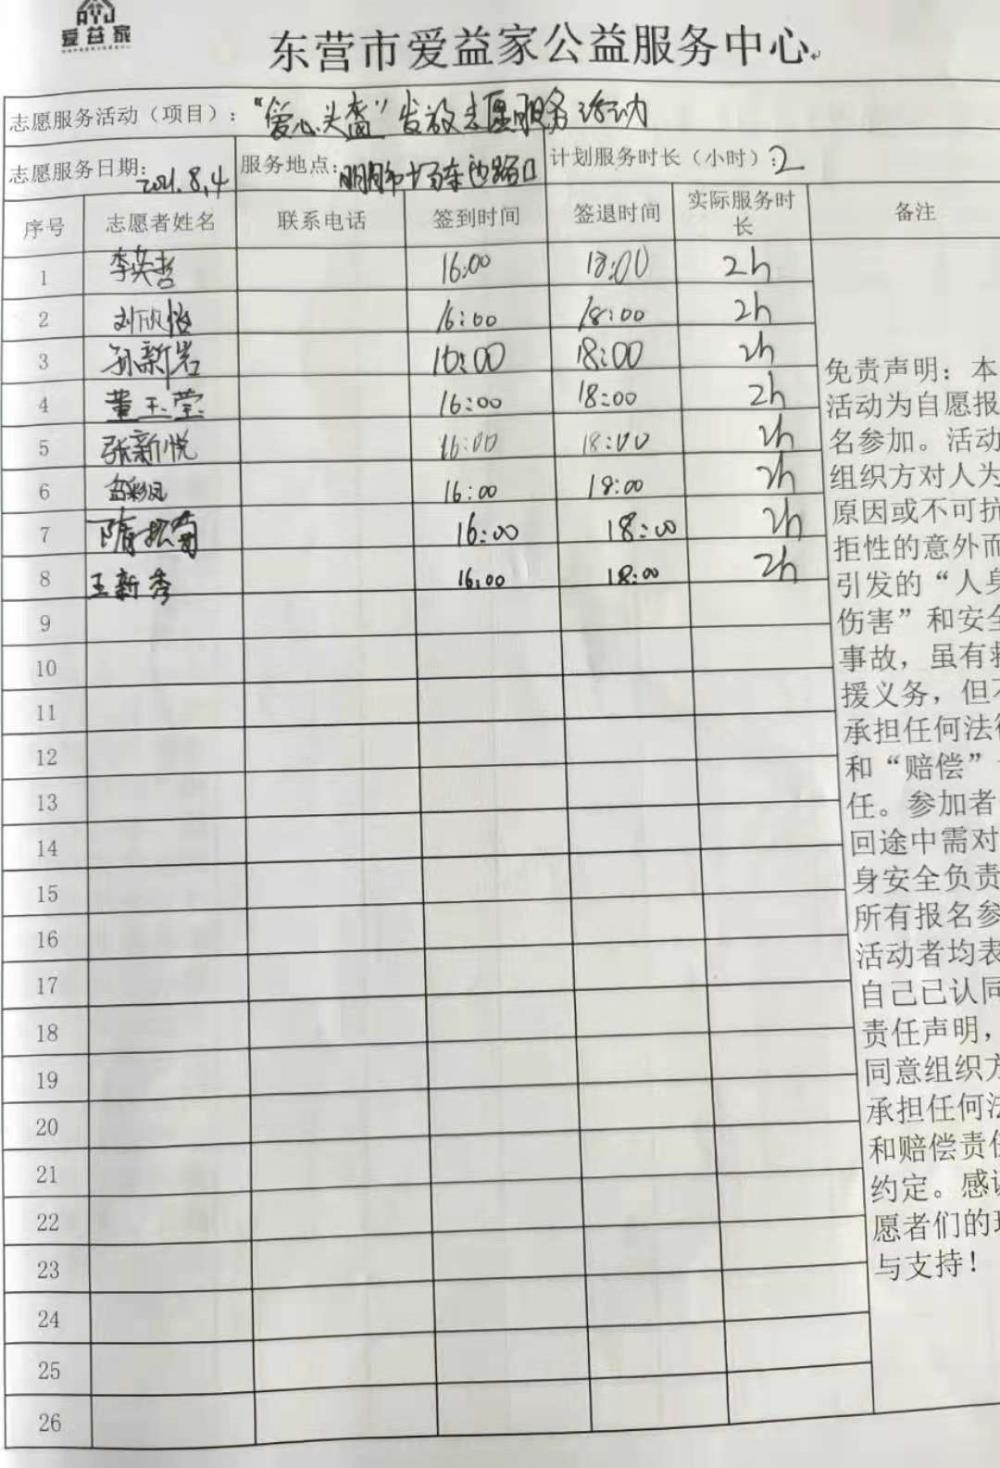 爱益家
东营市爱益家公益服务中心
志愿服务活动（项目）：“爱心头盔”发放志愿服务活动
志愿服务日期：2021.8.4 服务地点： 计划服务时长（小时）：2
序号 志愿者姓名 联系电话 签到时间 签退时间 实际服务时长 备注
1 李英哲 16:00 18:00 2h
2 刘欣怡 16:00 18:00 2h
3 孙新岩 16:00 18:00 2h
4 董玉莹 16:00 18:00 2h
5 张新悦 16:00 18:00 2h
6 16:00 18:00 2h
7 16:00 18:00 2h
8 王新秀 16:00 18:00 2h
9
10
11
12
13
14
15
16
17
18
19
20
21
22
23
24
25
26
免责声明：本
活动为自愿报
名参加。活动
组织方对人为
原因或不可抗
拒性的意外而
引发的“人身
伤害”和安全
事故，虽有救
援义务，但不
承担任何法律
和“赔偿”
任。参加者
回途中需对
身安全负责
所有报名参
活动者均表
自己已认同
责任声明，
同意组织方
承担任何法
和赔偿责任
约定。感谢
愿者们的理
与支持！